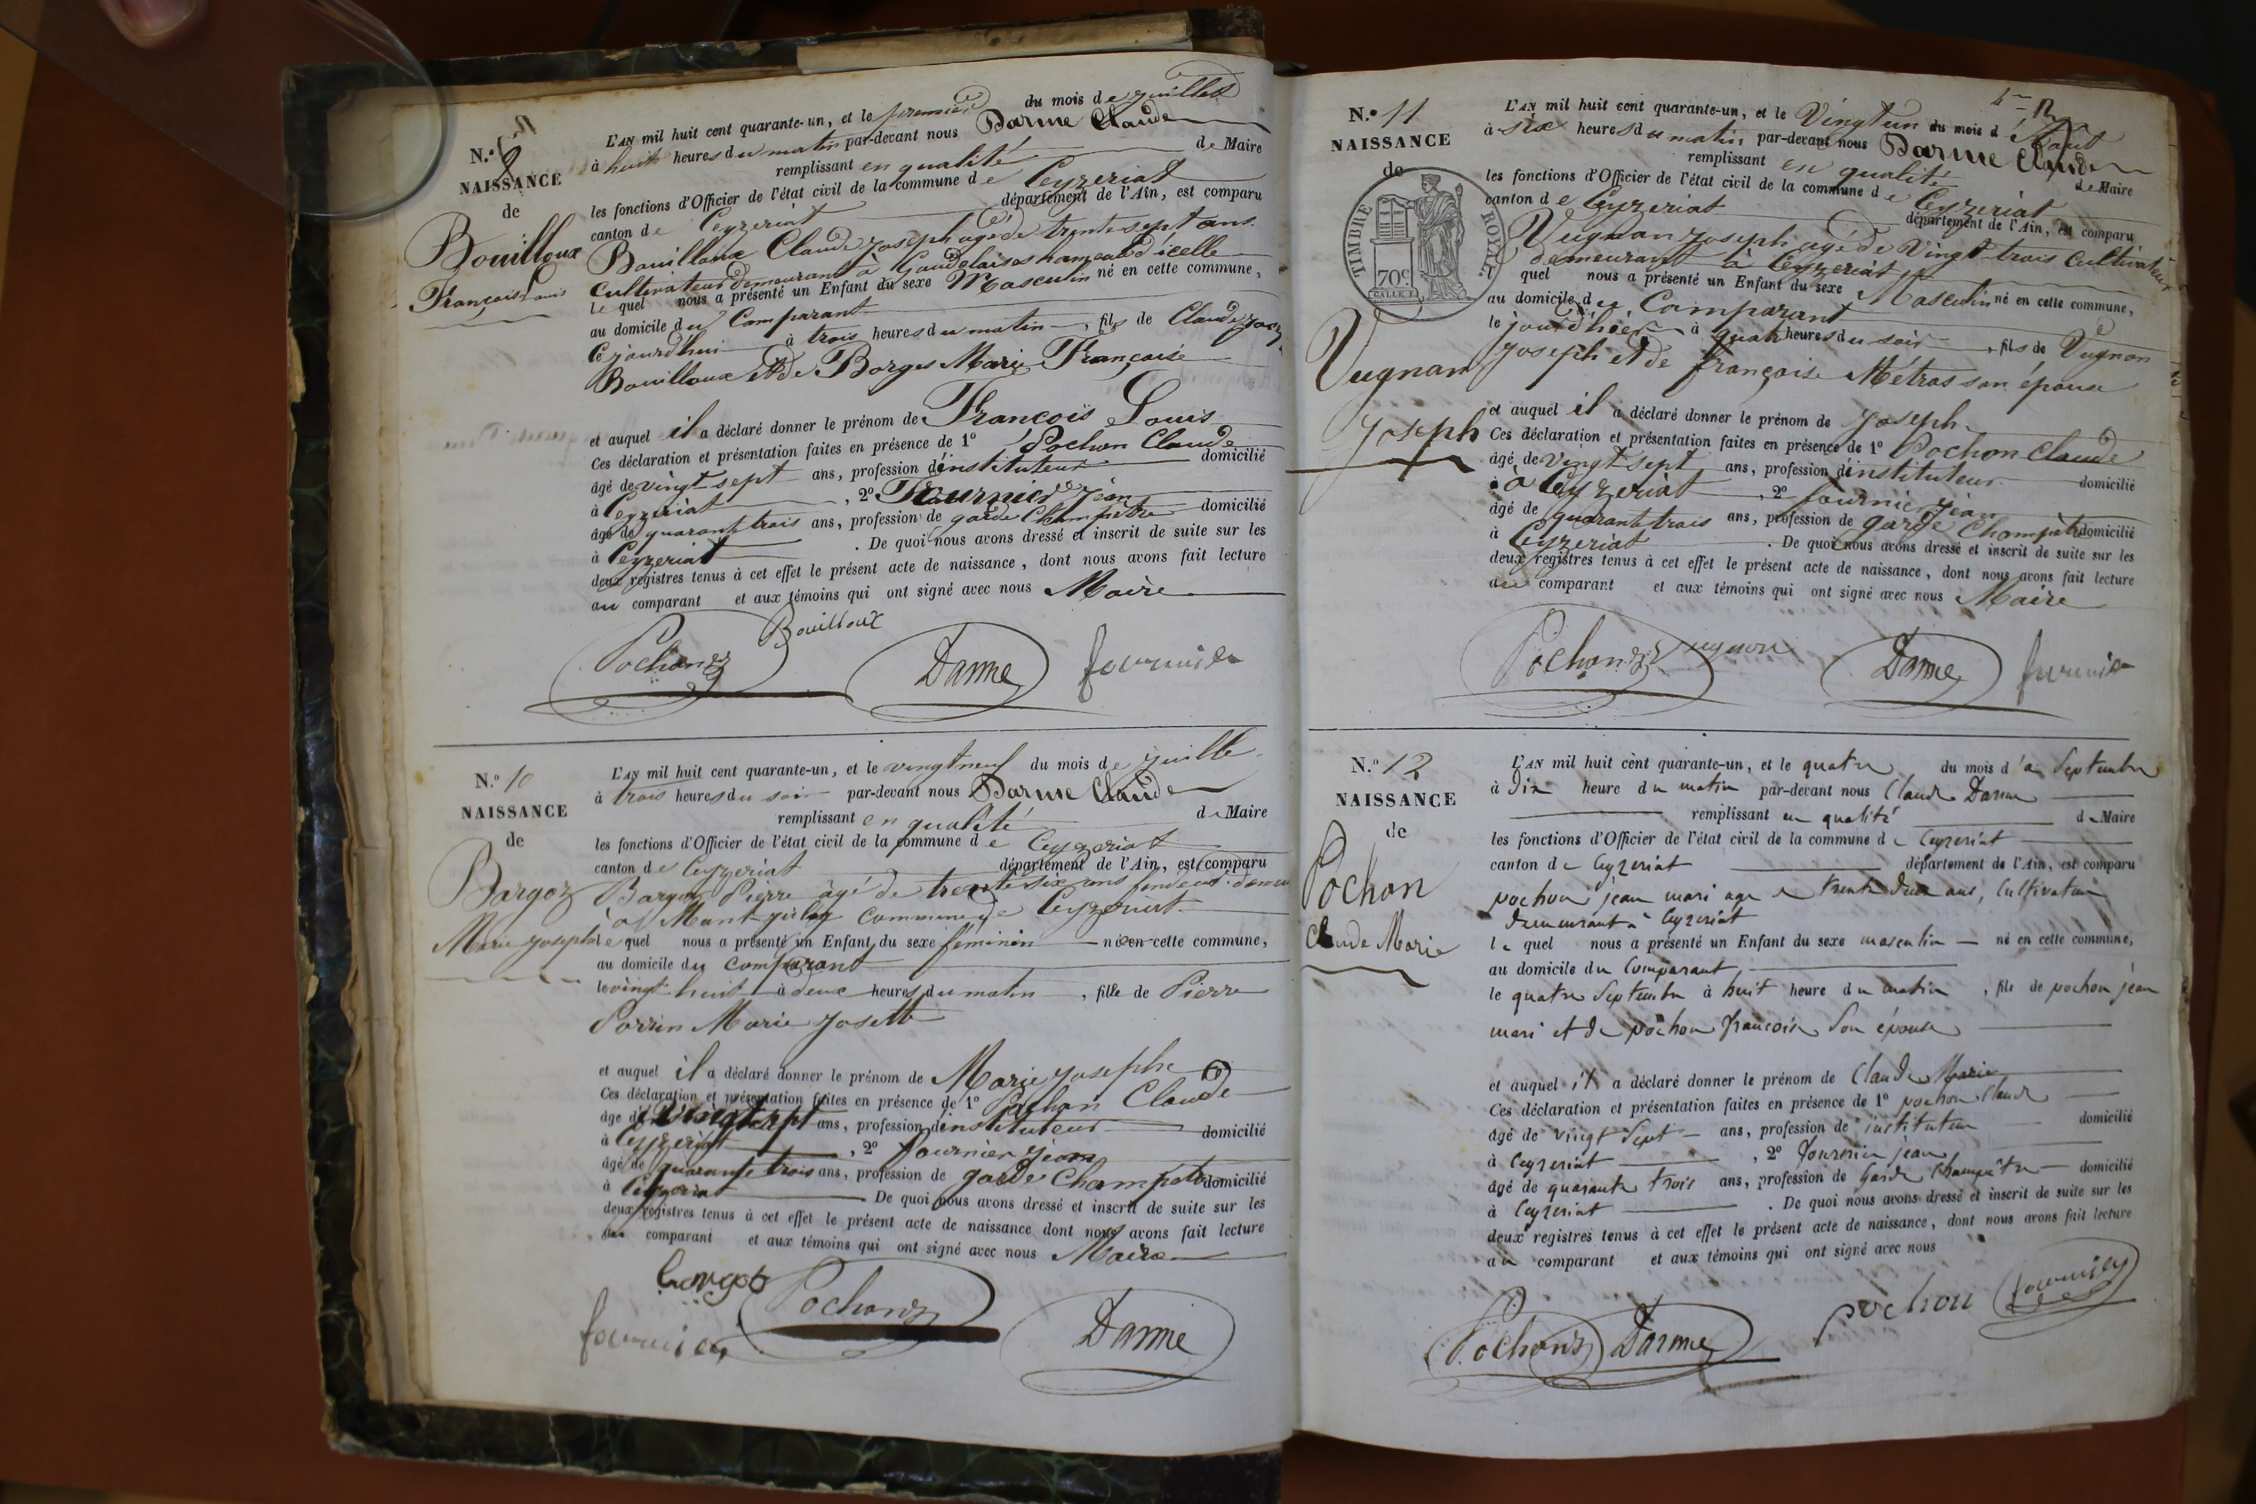 N.º 9
NAISSANCE
de
Bouilloux
François Louis
L'AN mil huit cent quarante-un, et le premier du mois de juillet
à huit heures du matin par-devant nous Darme Claude
remplissant en qualité de Maire
les fonctions d'Officier de l'état civil de la commune de Ceyzeriat
canton de Ceyzeriat département de l'Ain, est comparu
Bouilloux Claude Joseph agé de trente sept ans
Cultivateur demeurant à hameau d'icelle
le quel nous a présenté un Enfant du sexe Masculin né en cette commune,
au domicile du Comparant
Cejourd'hui à trois heures du matin, fils de Claude
Bouilloux et de Borges Marie Françoise
et auquel il a déclaré donner le prénom de François Louis
Ces déclaration et présentation faites en présence de 1º Pochon Claude
âgé de vingt sept ans, profession d'instituteur domicilié
à Ceyzeriat, 2º Fournier jean
âgé de quarante trois ans, profession de garde Champètre domicilié
à Ceyzeriat. De quoi nous avons dressé et inscrit de suite sur les
deux registres tenus à cet effet le présent acte de naissance, dont nous avons fait lecture
au comparant et aux témoins qui ont signé avec nous Maire
Bouilloux
Pochon Darme fournier
N.º 10
NAISSANCE
de
Bargoz
Marie josephe
L'AN mil huit cent quarante-un, et le vingt neuf du mois de juille
à trois heures du soir par-devant nous Darme Claude
remplissant en qualité de Maire
les fonctions d'Officier de l'état civil de la commune de Ceyzeriat
canton de Ceyzeriat département de l'Ain, est comparu
Bargoz Pierre âgé de trente six ans
à commune de Ceyzeriat
le quel nous a présenté un Enfant du sexe féminin née en cette commune,
au domicile du comparant
le vingt huit à deux heures du matin, fille de Pierre
Perrin Marie josette
et auquel il a déclaré donner le prénom de Marie josephe
Ces déclaration et présentation faites en présence de 1º Pochon Claude
âgé de vingt sept ans, profession d'instituteur domicilié
à Ceyzeriat, 2º fournier jean
âgé de quarante trois ans, profession de garde Champetre domicilié
à Ceyzeriat De quoi nous avons dressé et inscrit de suite sur les
deux registres tenus à cet effet le présent acte de naissance dont nous avons fait lecture
au comparant et aux témoins qui ont signé avec nous Maire
fournier Pochon Darme
N.º 11
NAISSANCE
de
TIMBRE ROYAL
70 c.
Vugnon
Joseph
L'AN mil huit cent quarante-un, et le Vingt un du mois d'Août
à six heures du matin par-devant nous Darme Claude
remplissant en qualité de Maire
les fonctions d'Officier de l'état civil de la commune de Ceyzeriat
canton de Ceyzeriat département de l'Ain, est comparu
Vugnon joseph agé de Vingt trois Cultivateur
demeurant à Ceyzeriat
quel nous a présenté un Enfant du sexe Masculin né en cette commune,
au domicile du Comparant
le jourd'hier à quatre heures du soir, fils de Vugnon
joseph et de françoise Métras son épouse
et auquel il a déclaré donner le prénom de Joseph
Ces déclaration et présentation faites en présence de 1º Pochon Claude
âgé de vingt sept ans, profession d'instituteur domicilié
à Ceyzeriat, 2º fournier jean
âgé de quarante trois ans, profession de garde Champètre domicilié
à Ceyzeriat. De quoi nous avons dressé et inscrit de suite sur les
deux registres tenus à cet effet le présent acte de naissance, dont nous avons fait lecture
au comparant et aux témoins qui ont signé avec nous Maire
Pochon Vugnon Darme fournier
N.º 12
NAISSANCE
de
Pochon
Claude Marie
L'AN mil huit cent quarante-un, et le quatre du mois de Septembre
à Dix heure du matin par-devant nous Claude Darme
remplissant en qualité de Maire
les fonctions d'Officier de l'état civil de la commune de Ceyzeriat
canton de Ceyzeriat département de l'Ain, est comparu
pochon jean mari age de trente deux ans, Cultivateur
demeurant à Ceyzeriat
le quel nous a présenté un Enfant du sexe masculin né en cette commune,
au domicile du Comparant
le quatre Septembre à huit heure du matin, fils de pochon jean
mari et de pochon françoise son épouse
et auquel il a déclaré donner le prénom de Claude Marie
Ces déclaration et présentation faites en présence de 1º pochon Claude
âgé de vingt Sept ans, profession de instituteur domicilié
à Ceyzeriat, 2º fournier jean
âgé de quarante trois ans, profession de Garde Champêtre domicilié
à Ceyzeriat. De quoi nous avons dressé et inscrit de suite sur les
deux registres tenus à cet effet le présent acte de naissance, dont nous avons fait lecture
au comparant et aux témoins qui ont signé avec nous
Pochon Darme pochon fournier